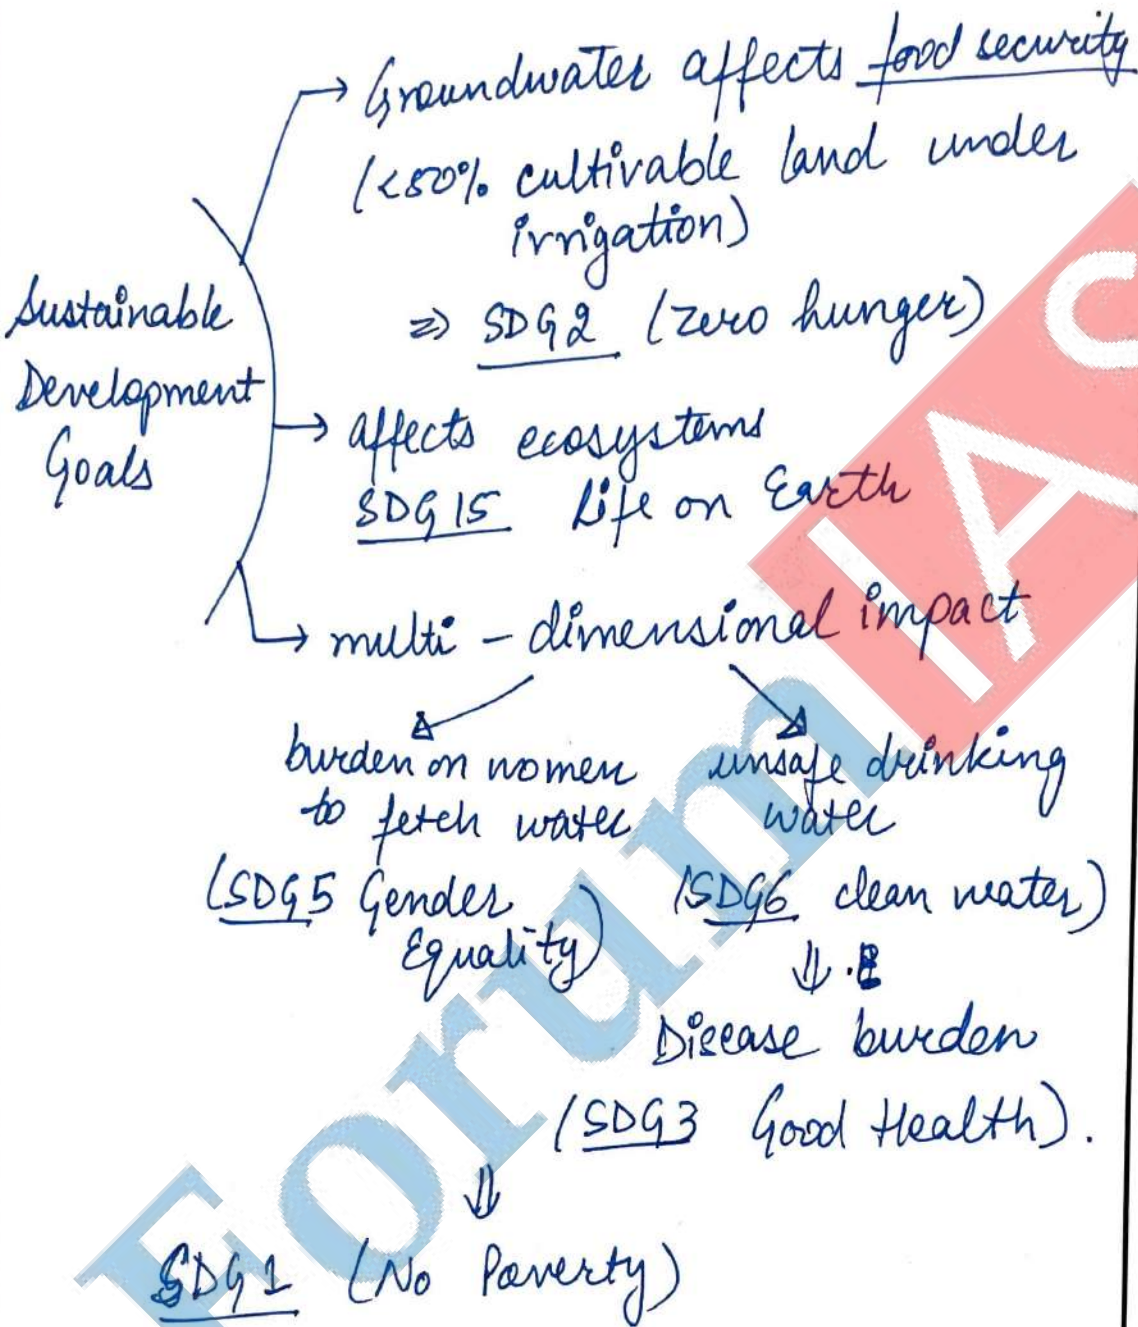 → Groundwater affects food security
(<50% cultivable land under
irrigation)
Sustainable
Development
Goals
⇒ SDG2 (zero hunger)
→ affects ecosystems
SDG 15 Life on Earth
→ multi - dimensional impact
burden on women
to fetch water
(SDG5 Gender
Equality)
unsafe drinking
water
(SDG6 clean water)
⇓
Disease burden
(SDG3 Good Health).
⇓
SDG1 (No Poverty)
Forum IAS